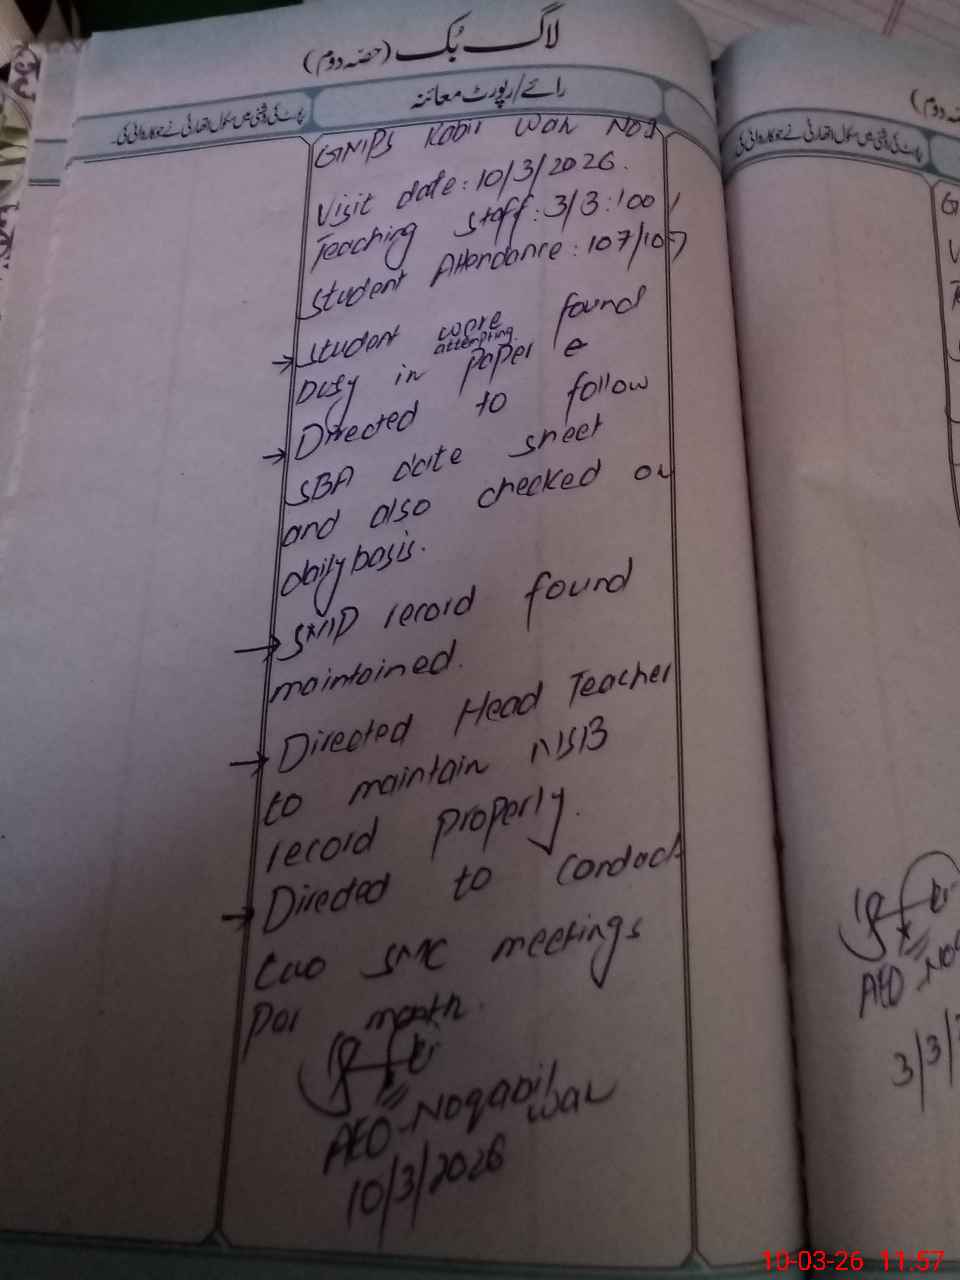 لاگ بُک (حصّہ دوم)
رائے/رپورٹ معائنہ
GMPS Kabir Wah No1
Visit date: 10/3/2026.
Teaching Staff: 3/3:100%
Student Attendance: 107/107
→ Student were found
busy in attempting paper
→ Directed to follow
SBA date sheet
and also checked on
daily basis.
→ SMP record found
maintained.
→ Directed Head Teacher
to maintain NSB
record properly.
→ Directed to conduct
two SMC meetings
per month.
AEO-Noqabil
wah
10/3/2026
AEO-Noq
3/3/
10-03-26 11.57